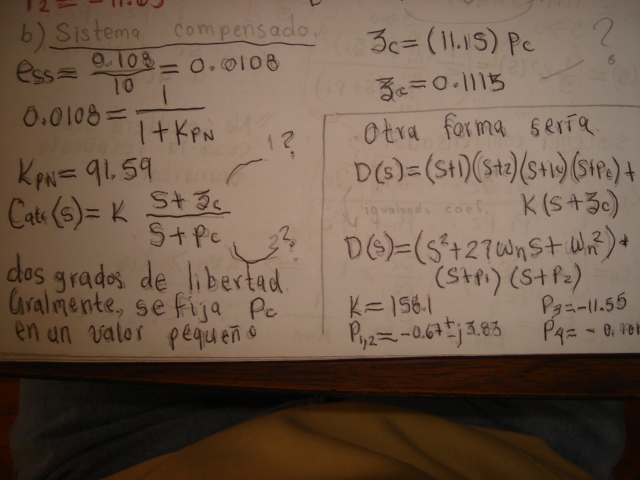 b) Sistema compensado.
ess = 0.108/10 = 0.0108
0.0108 = 1/(1+KPN)
KPN = 91.59
1?
Catr(s) = K (s+zc)/(s+pc)
2?
dos grados de libertad.
Gralmente, se fija pc
en un valor pequeño
zc = (11.15) pc
?
zc = 0.1115
Otra forma sería
D(s) = (s+1)(s+2)(s+10)(s+pc) +
K(s+zc)
igualando coef.
D(s) = (s²+2ζωns+ωn²)*
(s+p1)(s+p2)
K = 158.1
P3 = -11.55
P1,2 = -0.67±j3.83